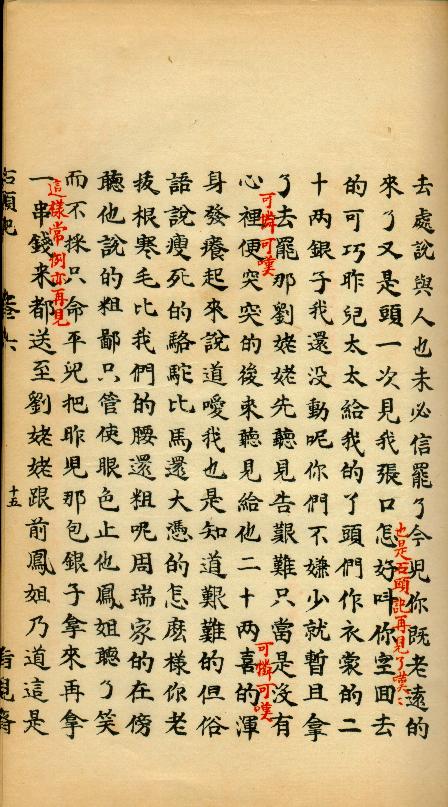 去處說與人也未必信罷了今児你既老遠的
來了又是頭一次見我張口怎好呌你空囬去
也是石頭記再見了嘆〻
的可巧昨児太太給我的了頭們作衣裳的二
十兩銀子我還没動呢你們不嫌少就暫且拿
了去罷那劉姥姥先聽見告艱難只當是没有
可憐可嘆
可憐可嘆
心裡便突突的後來聽見給他二十兩喜的渾
身發癢起來說道噯我也是知道艱難的但俗
語說瘦死的駱駝比馬還大憑的怎麽樣你老
拔根寒毛比我們的腰還粗呢周瑞家的在傍
聽他說的粗鄙只管使眼色止他鳳姐聽了笑
而不採只命平兒把昨児那包銀子拿來再拿
這樣常例亦再見
一串錢来都送至劉姥姥跟前鳳姐乃道這是
石頭記 卷六 十五